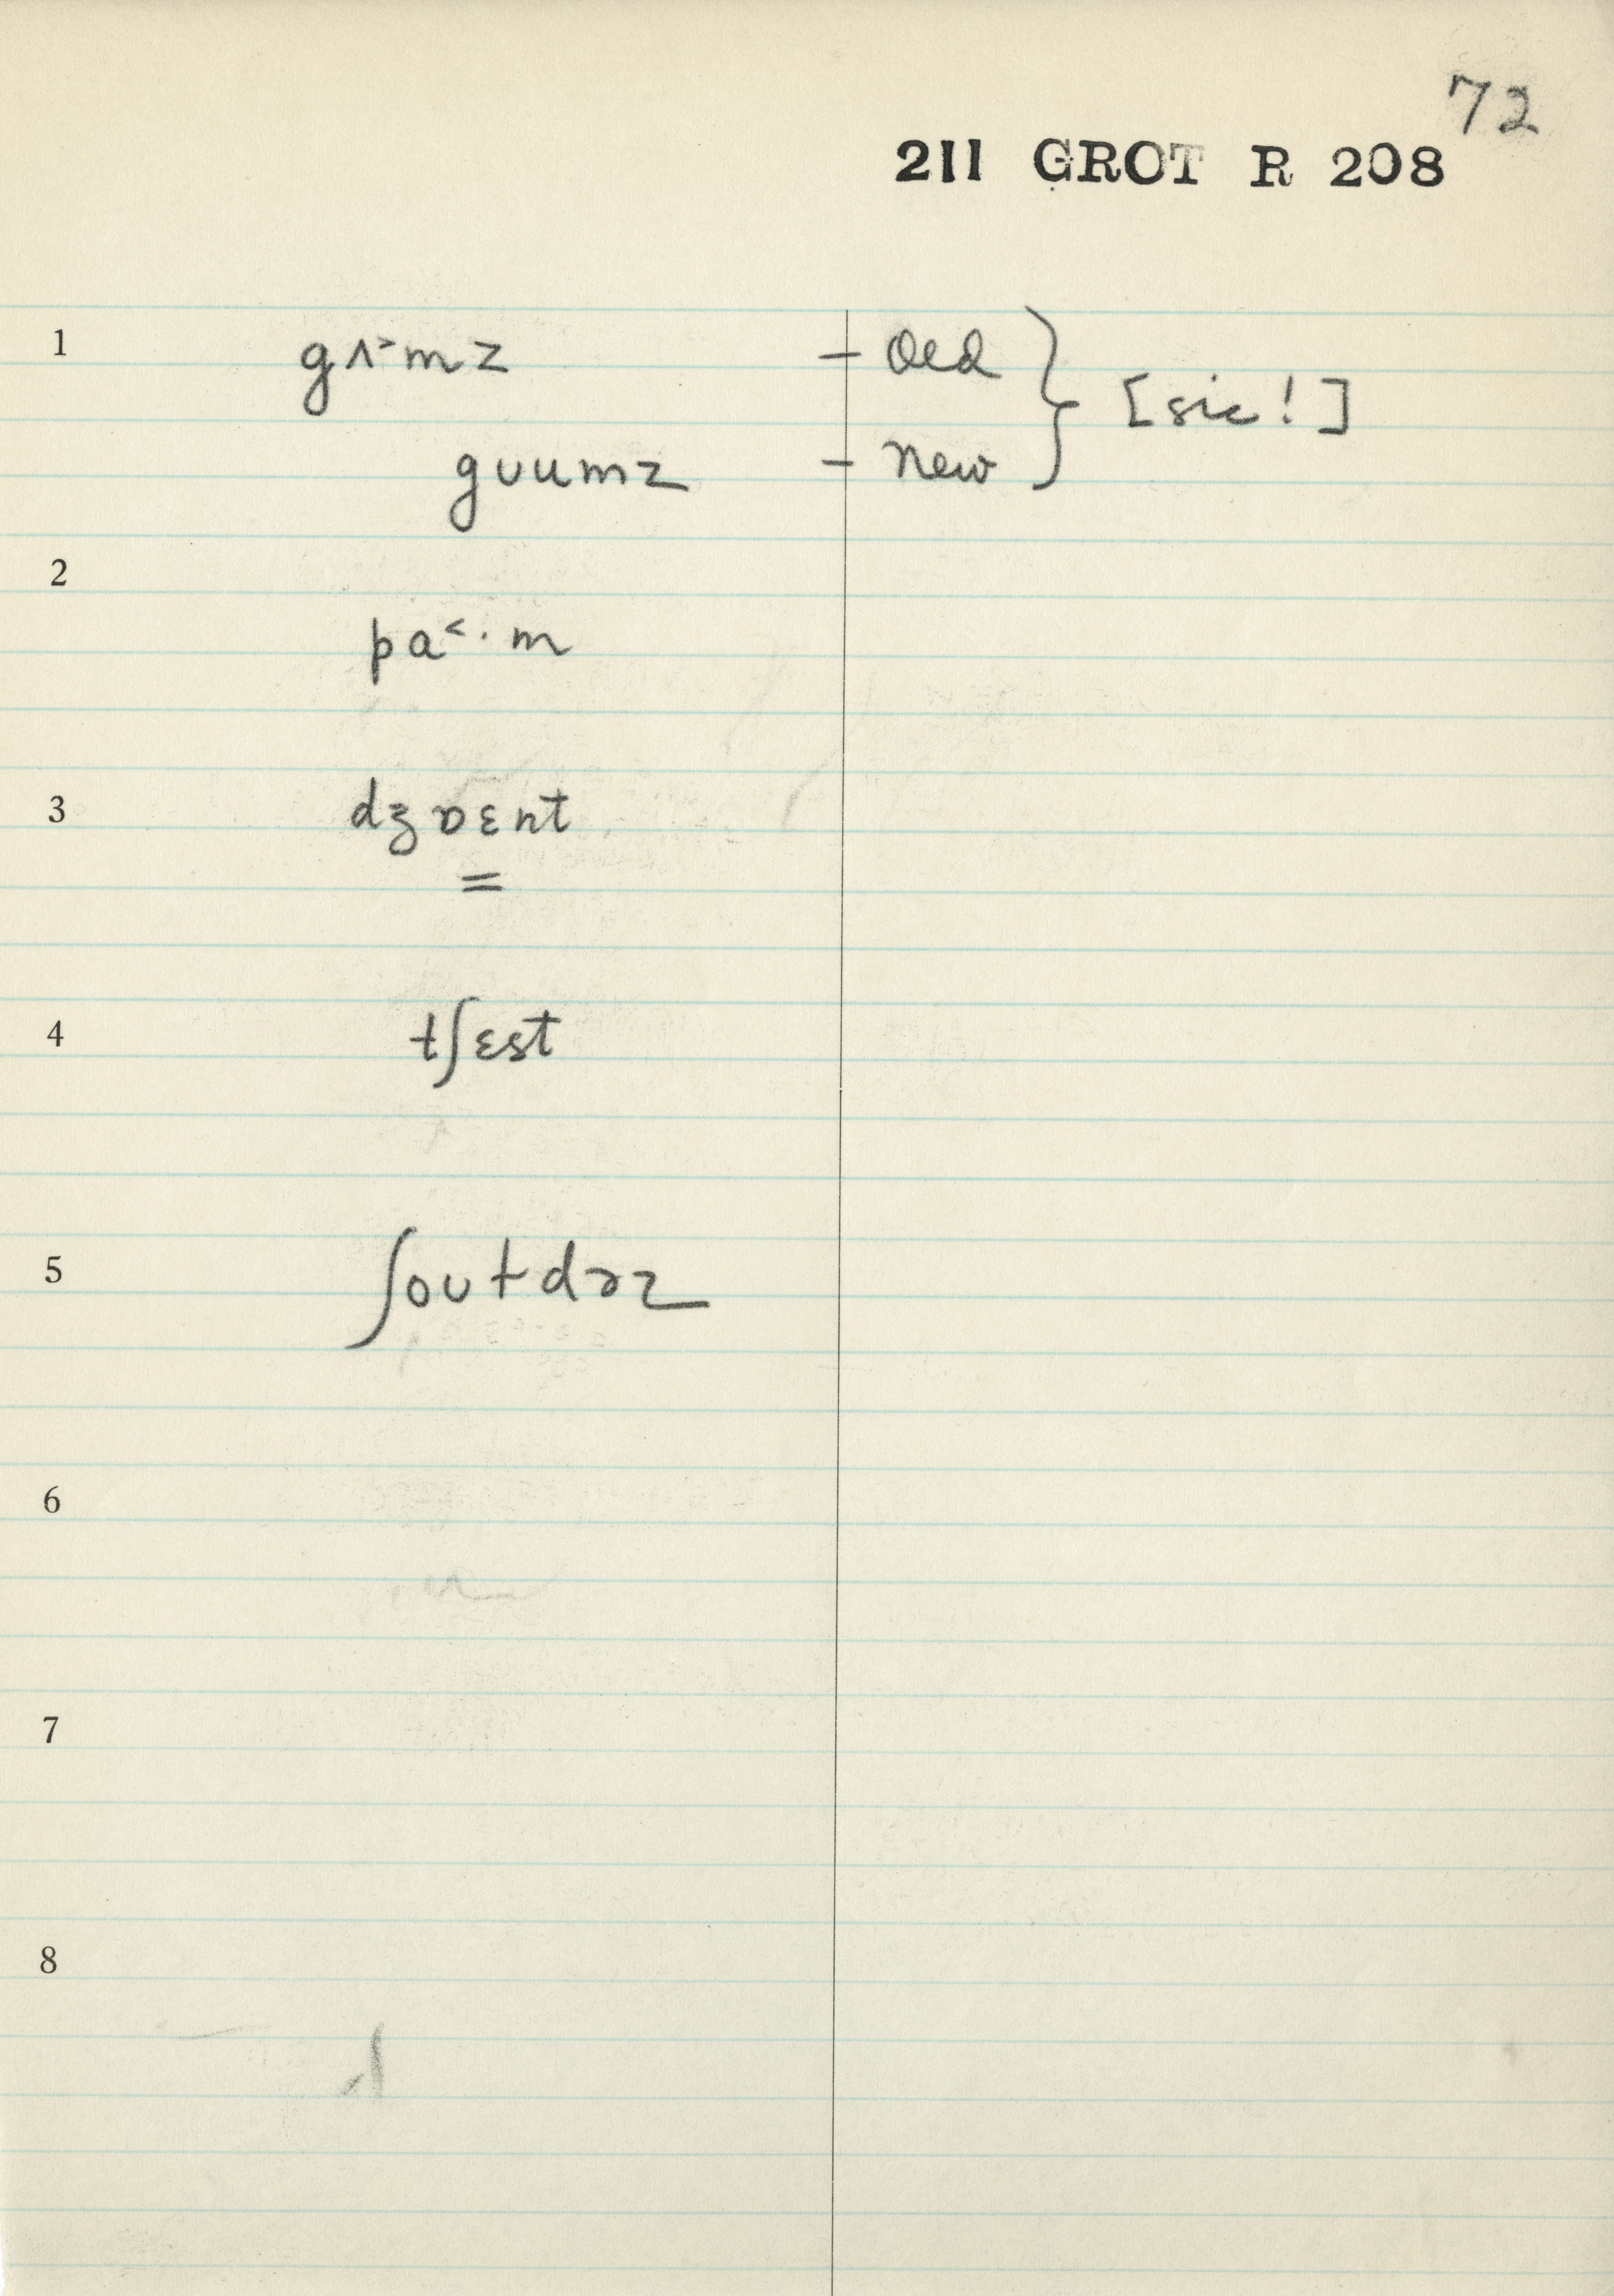 72
211 GROT R 208
1 gʌ˃mz – old } [sic!]
gʊumz – new
2
pa˂·m
3 dʒɒɛnt
=
4 tʃɛst
5 ʃoʊtdɚz
6
7
8